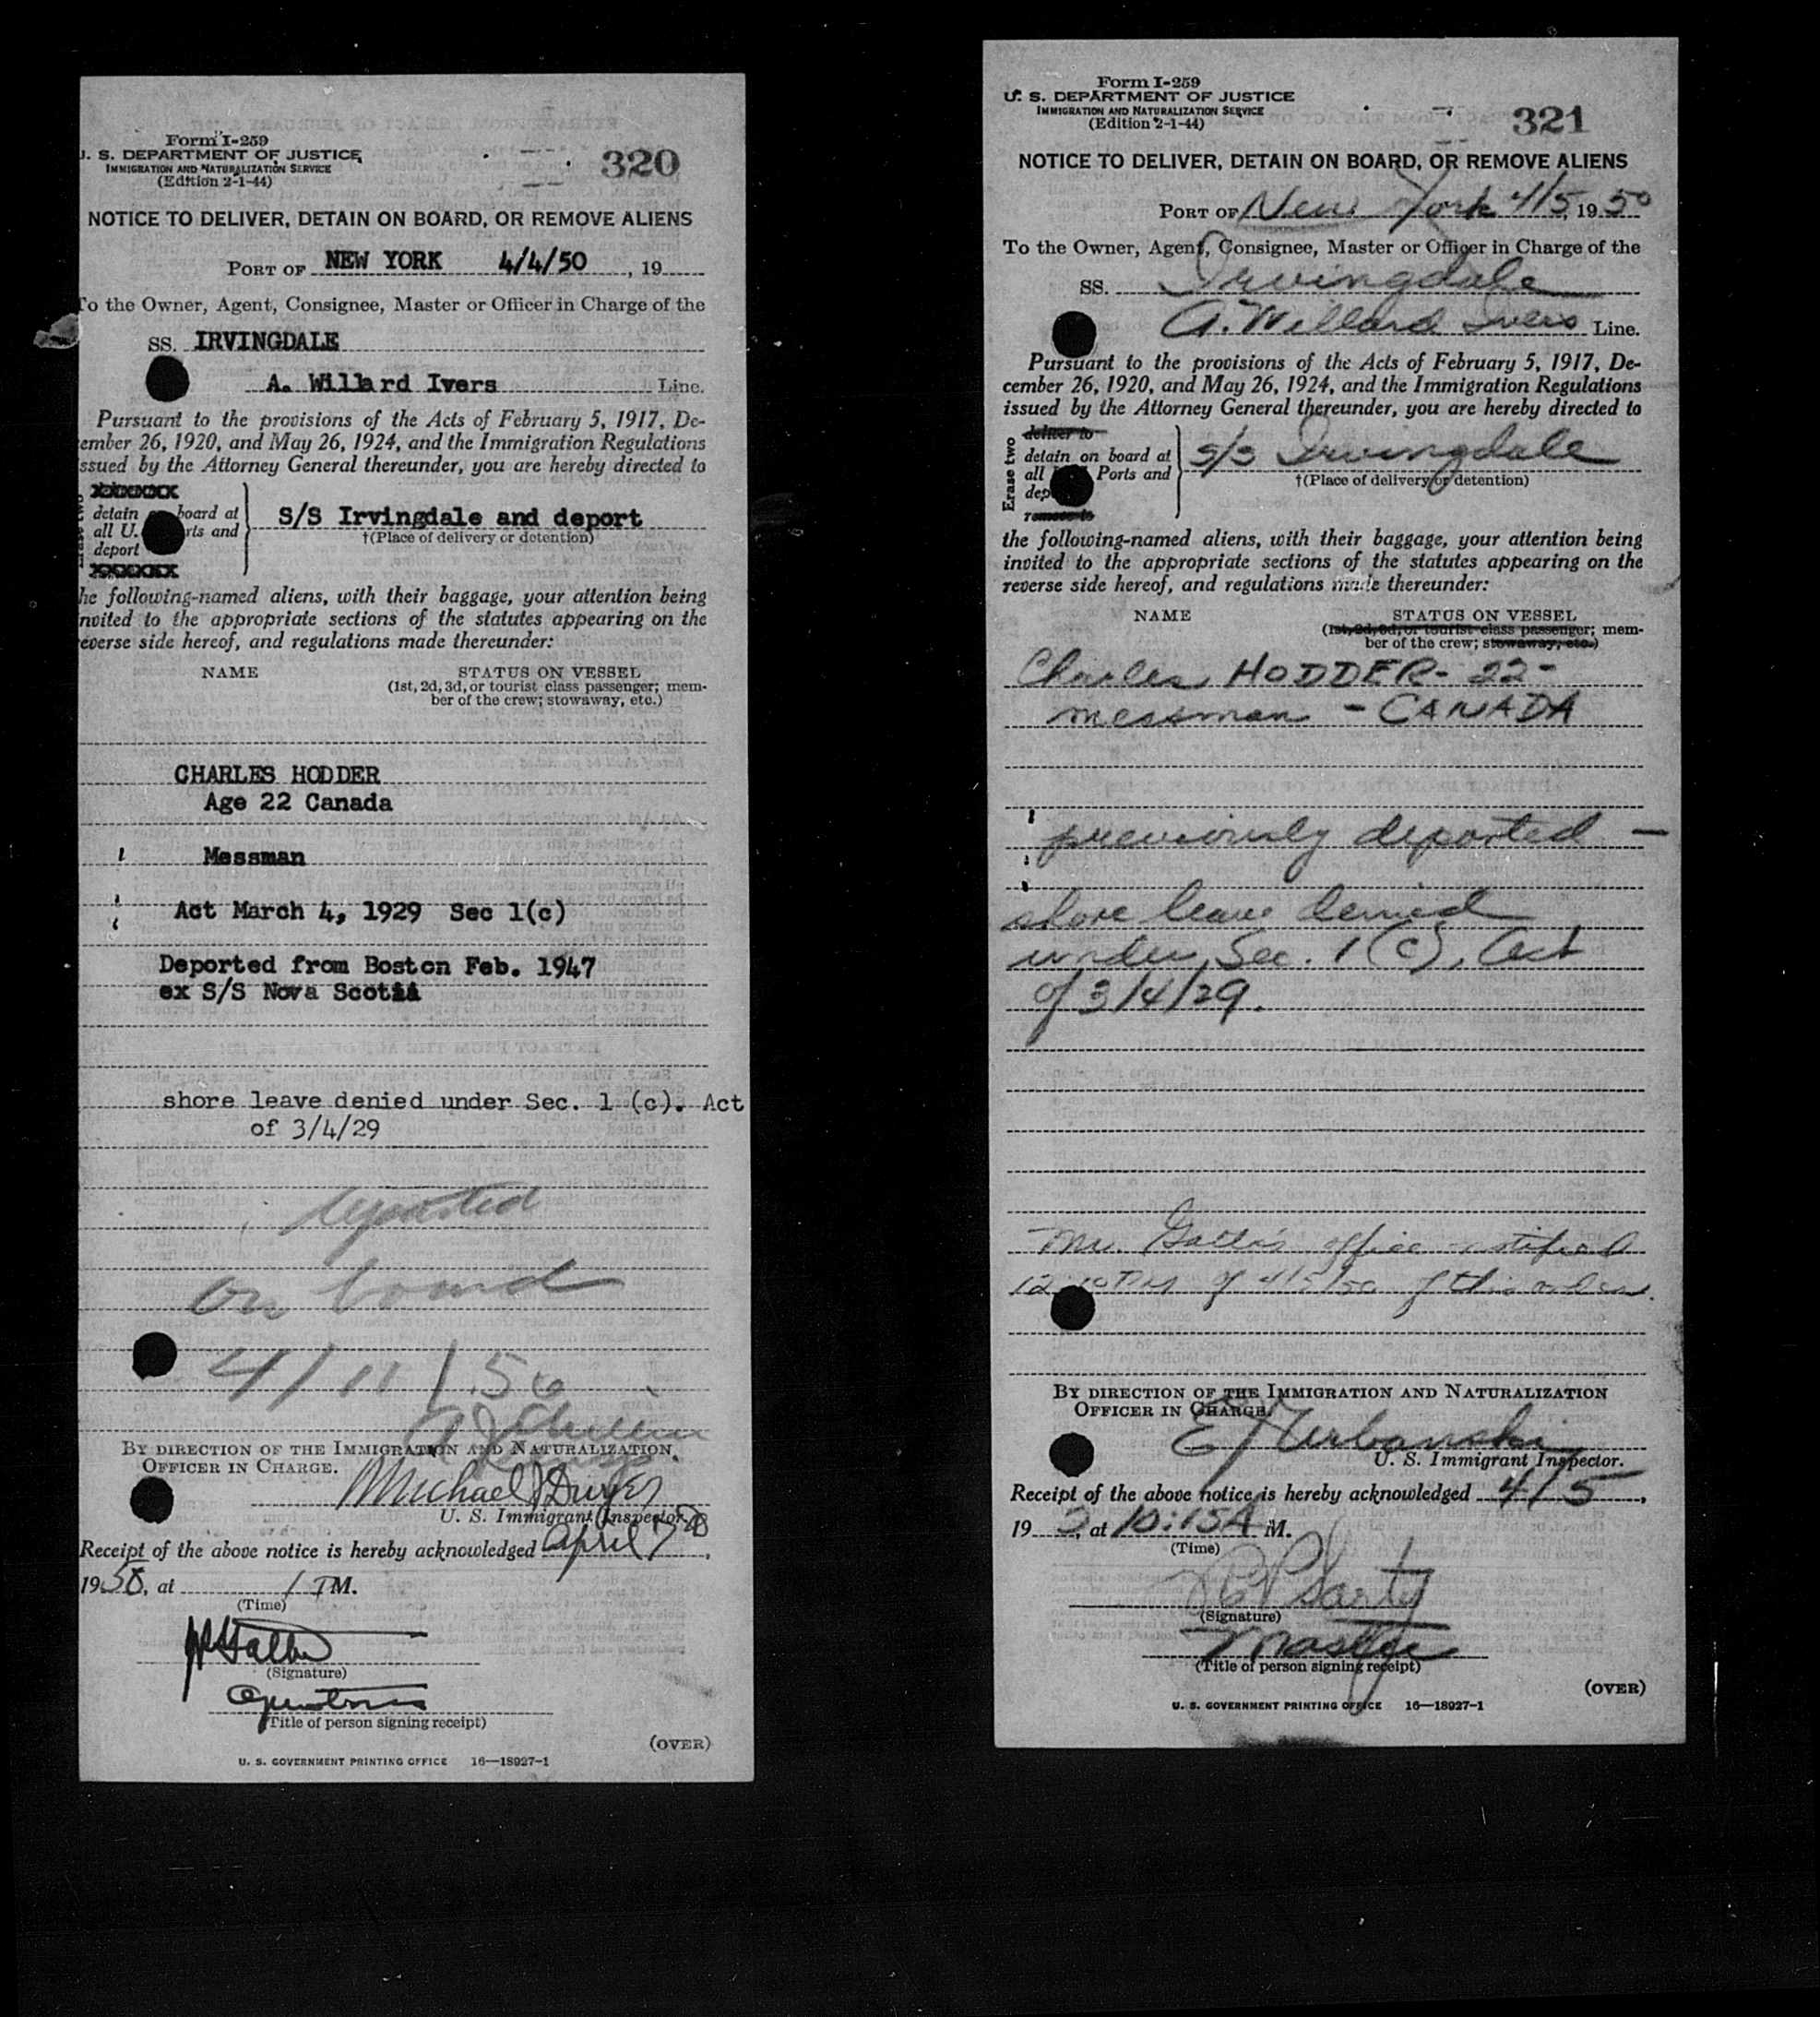 Form I-259
U. S. DEPARTMENT OF JUSTICE
IMMIGRATION AND NATURALIZATION SERVICE
(Edition 2-1-44)
320
NOTICE TO DELIVER, DETAIN ON BOARD, OR REMOVE ALIENS
PORT OF NEW YORK 4/4/50, 19
To the Owner, Agent, Consignee, Master or Officer in Charge of the
SS. IRVINGDALE
A. Willard Ivers Line.
Pursuant to the provisions of the Acts of February 5, 1917, De-
cember 26, 1920, and May 26, 1924, and the Immigration Regulations
issued by the Attorney General thereunder, you are hereby directed to
XXXXXXX
detain board at
all U. rts and
deport
XXXXXXX
S/S Irvingdale and deport
†(Place of delivery or detention)
the following-named aliens, with their baggage, your attention being
invited to the appropriate sections of the statutes appearing on the
reverse side hereof, and regulations made thereunder:
NAME STATUS ON VESSEL
(1st, 2d, 3d, or tourist class passenger; mem-
ber of the crew; stowaway, etc.)
CHARLES HODDER
Age 22 Canada
Messman
Act March 4, 1929 Sec 1(c)
Deported from Boston Feb. 1947
ex S/S Nova Scotia
shore leave denied under Sec. 1 (c). Act
of 3/4/29
deported
on board
4/11/50
BY DIRECTION OF THE IMMIGRATION AND NATURALIZATION
OFFICER IN CHARGE.
Michael J Dwyer
U. S. Immigrant Inspector.
Receipt of the above notice is hereby acknowledged April 7
1950, at 1 PM.
(Time)
(Signature)
(Title of person signing receipt)
(OVER)
U. S. GOVERNMENT PRINTING OFFICE 16—18927-1
Form I-259
U. S. DEPARTMENT OF JUSTICE
IMMIGRATION AND NATURALIZATION SERVICE
(Edition 2-1-44)
321
NOTICE TO DELIVER, DETAIN ON BOARD, OR REMOVE ALIENS
PORT OF New York 4/5, 1950
To the Owner, Agent, Consignee, Master or Officer in Charge of the
SS. Irvingdale
A. Willard Ivers Line.
Pursuant to the provisions of the Acts of February 5, 1917, De-
cember 26, 1920, and May 26, 1924, and the Immigration Regulations
issued by the Attorney General thereunder, you are hereby directed to
Erase two
deliver to
detain on board at
all Ports and
dep
remove to
S/S Irvingdale
†(Place of delivery or detention)
the following-named aliens, with their baggage, your attention being
invited to the appropriate sections of the statutes appearing on the
reverse side hereof, and regulations made thereunder:
NAME STATUS ON VESSEL
(1st, 2d, 3d, or tourist class passenger; mem-
ber of the crew; stowaway, etc.)
Charles HODDER - 22 -
messman - CANADA
previously deported —
shore leave denied
under Sec. 1 (c), Act
of 3/4/29.
Mr. Galla's office notified
12:10 PM of 4/5/50 of this order.
BY DIRECTION OF THE IMMIGRATION AND NATURALIZATION
OFFICER IN CHARGE.
E J Urbanski
U. S. Immigrant Inspector.
Receipt of the above notice is hereby acknowledged 4/5,
19 , at 10:15A M.
(Time)
(Signature)
Master
(Title of person signing receipt)
(OVER)
U. S. GOVERNMENT PRINTING OFFICE 16—18927-1